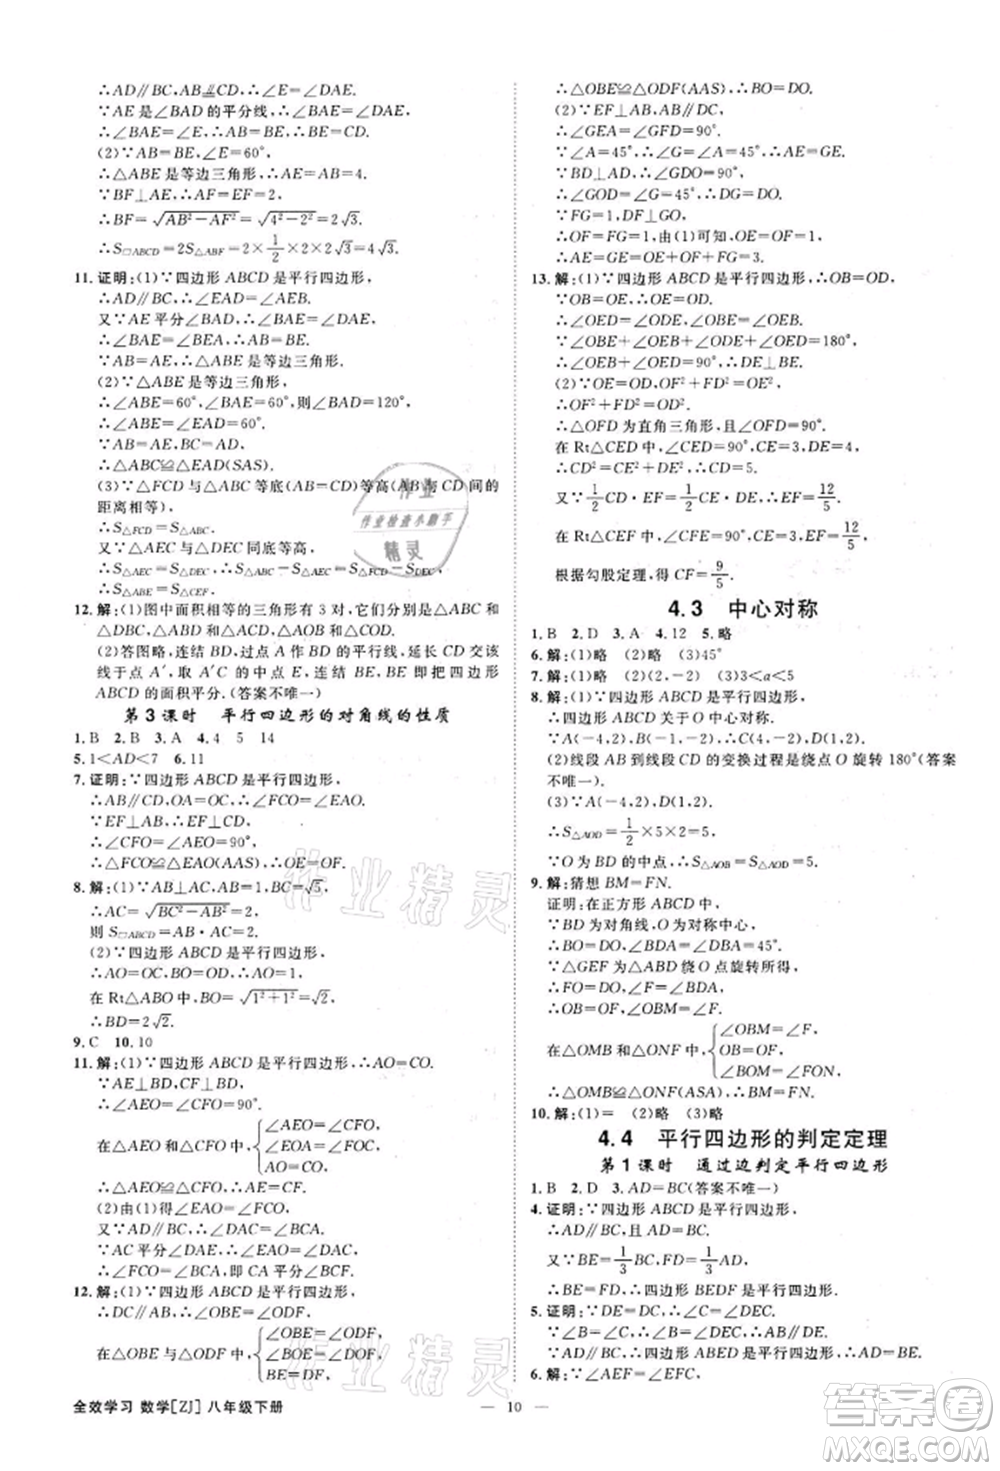 ∴AD∥BC,AB≌CD,∴∠E=∠DAE.
∵AE是∠BAD的平分线,∴∠BAE=∠DAE.
∴∠BAE=∠E,∴AB=BE,∴BE=CD.
(2)∵AB=BE,∠BEA=60°,
∴△ABE是等边三角形,∴AE=AB=4.
∵BF⊥AE,∴AF=EF=2,
∴BF=√(AB²−AF²)=√(4²−2²)=2√3.
∴S□ABCD=2S△ABF=2×1/2×2×2√3=4√3.
11.证明:(1)∵四边形ABCD是平行四边形,
∴AD∥BC,∴∠EAD=∠AEB.
又∵AE平分∠BAD,∴∠BAE=∠DAE,
∴∠BAE=∠BEA,∴AB=BE.
∵AB=AE,∴△ABE是等边三角形.
(2)∵△ABE是等边三角形,
∴∠ABE=60°,∠BAE=60°,则∠BAD=120°,
∴∠ABE=∠EAD=60°.
∵AB=AE,BC=AD,
∴△ABC≌△EAD(SAS).
(3)∵△FCD与△ABC等底等高(AB与CD间的
距离相等),
∴S△FCD=S△ABC.
又∵△AEC与△DEC同底等高,
∴S△AEC=S△DEC,∴S△ABE=S△CEF.
12.解:(1)图中面积相等的三角形有3对,△ABC和
△DBC,△ABD和△ACD,△AOB和△COD.
(2)答图略,连结BD,过点A作BD的平行线,延长CD交该
线于点A′,取A′C的中点E,连结BE,BE即把四边形
ABCD的面积平分.(答案不唯一)
第3课时 平行四边形的对角线的性质
1.B 2.B 3.A 4.4 5 14
5.1<AD<7 6.11
7.证明:∵四边形ABCD是平行四边形,
∴AB∥CD,OA=OC,∴∠FCO=∠EAO.
∵EF⊥AB,∴EF⊥CD,
∴∠CFO=∠AEO=90°,
∴△FCO≌△EAO(AAS),∴OE=OF.
8.解:(1)∵AB⊥AC,AB=1,BC=√5,
∴AC=√(BC²−AB²)=2,
则S□ABCD=AB·AC=2.
(2)∵四边形ABCD是平行四边形,
∴AO=OC,BO=OD,∴AO=1,
在Rt△ABO中,BO=√(1²+1²)=√2,
∴BD=2√2.
9.C 10.10
11.解:(1)∵四边形ABCD是平行四边形,∴AO=CO.
∵AE⊥BD,CF⊥BD,
∴∠AEO=∠CFO=90°.
在△AEO和△CFO中,{∠AEO=∠CFO, ∠AOE=∠COF, AO=CO,
∴△AEO≌△CFO(AAS),∴AE=CF.
(2)由(1)得∠EAO=∠FCO,
又∵AD∥BC,∴∠DAC=∠BCA.
∵AC平分∠DAE,∴∠DAC=∠EAC,
∴∠FCA=∠BCA,即CA平分∠BCF.
12.解:(1)∵四边形ABCD是平行四边形,
∴DC∥AB,∴∠OBE=∠ODF.
在△OBE与△ODF中,{∠OBE=∠ODF, ∠BOE=∠DOF, BE=DF,
∴△OBE≌△ODF(AAS),∴BO=DO.
(2)∵EF⊥AB,AB∥DC,
∴∠GEA=∠GFD=90°.
∵∠A=45°,∴∠G=∠A=45°,∴AE=GE.
∵BD⊥AD,∴∠GDO=90°,
∴∠GOD=∠G=45°,∴DG=DO.
∵FG=1,DF⊥GO,
∴OF=FG=1,由(1)可知,OE=OF=1,
∴GE=OE+OF+FG=3,∴AE=3.
13.解:(1)∵四边形ABCD是平行四边形,∴OB=OD.
∵OB=OE,∴OE=OD,
∴∠OED=∠ODE,∠OBE=∠OEB.
∵∠OBE+∠OEB+∠OED+∠ODE=180°,
∴∠OEB+∠OED=90°,∴DE⊥BE.
(2)∵OE=OD,OF²+FD²=OE²,
∴OF²+FD²=OD²,
∴△OFD为直角三角形,且∠OFD=90°.
在Rt△CED中,∠CED=90°,CE=3,DE=4,
∴CD=5.
又∵1/2CD·EF=1/2CE·DE,∴EF=12/5.
在Rt△CEF中,∠CFE=90°,CE=3,EF=12/5,
根据勾股定理,得CF=9/5.
4.3 中心对称
1.B 2.D 3.A 4.12 5.略
6.解:(1)略 (2)略 (3)45°
7.解:(1)略 (2)(2,−2) (3)3<a<5
8.解:(1)∵四边形ABCD是平行四边形,
∴四边形ABCD关于O中心对称.
∵A(−4,2),B(−1,−2),
∴C(4,−2),D(1,2).
(2)线段AB到线段CD的变换过程是绕点O旋转180°(答案
不唯一).
(3)∵A(−4,2),D(1,2).
∴S△AOD=1/2×5×2=5,
∵O为BD的中点,∴S△AOB=S△AOD=5.
9.解:猜想BM=FN.
证明:在正方形ABCD中,
∵BD为对角线,O为对称中心,
∴BO=DO,∠BDA=∠DBA=45°.
∵△GEF为△ABD绕O点旋转所得,
∴FO=DO,∠F=∠BDA,
∴OB=OF,∠OBM=∠F,
在△OMB和△ONF中,{∠OBM=∠F, OB=OF, ∠BOM=∠FON,
∴△OMB≌△ONF(ASA),∴BM=FN.
10.解:(1)= (2)略 (3)略
4.4 平行四边形的判定定理
第1课时 通过边判定平行四边形
1.B 2.D 3.AD=BC(答案不唯一)
4.证明:∵四边形ABCD是平行四边形,
∴AD∥BC且AD=BC.
又∵BE=1/3BC,FD=1/3AD,
∴BE=FD,∴四边形BEDF是平行四边形.
5.证明:∵△ABC≌△DEC,
∴∠B=∠DEC,AB=DE,
∴AB∥DE,∴四边形ABED是平行四边形.
6.解:(1)∵△AEF≌△EFC,
全效学习 数学[ZJ]八年级下册
10
作业检查小助手
作业精灵
作业精灵
作业精灵
作业帮答案
MXQE.COM